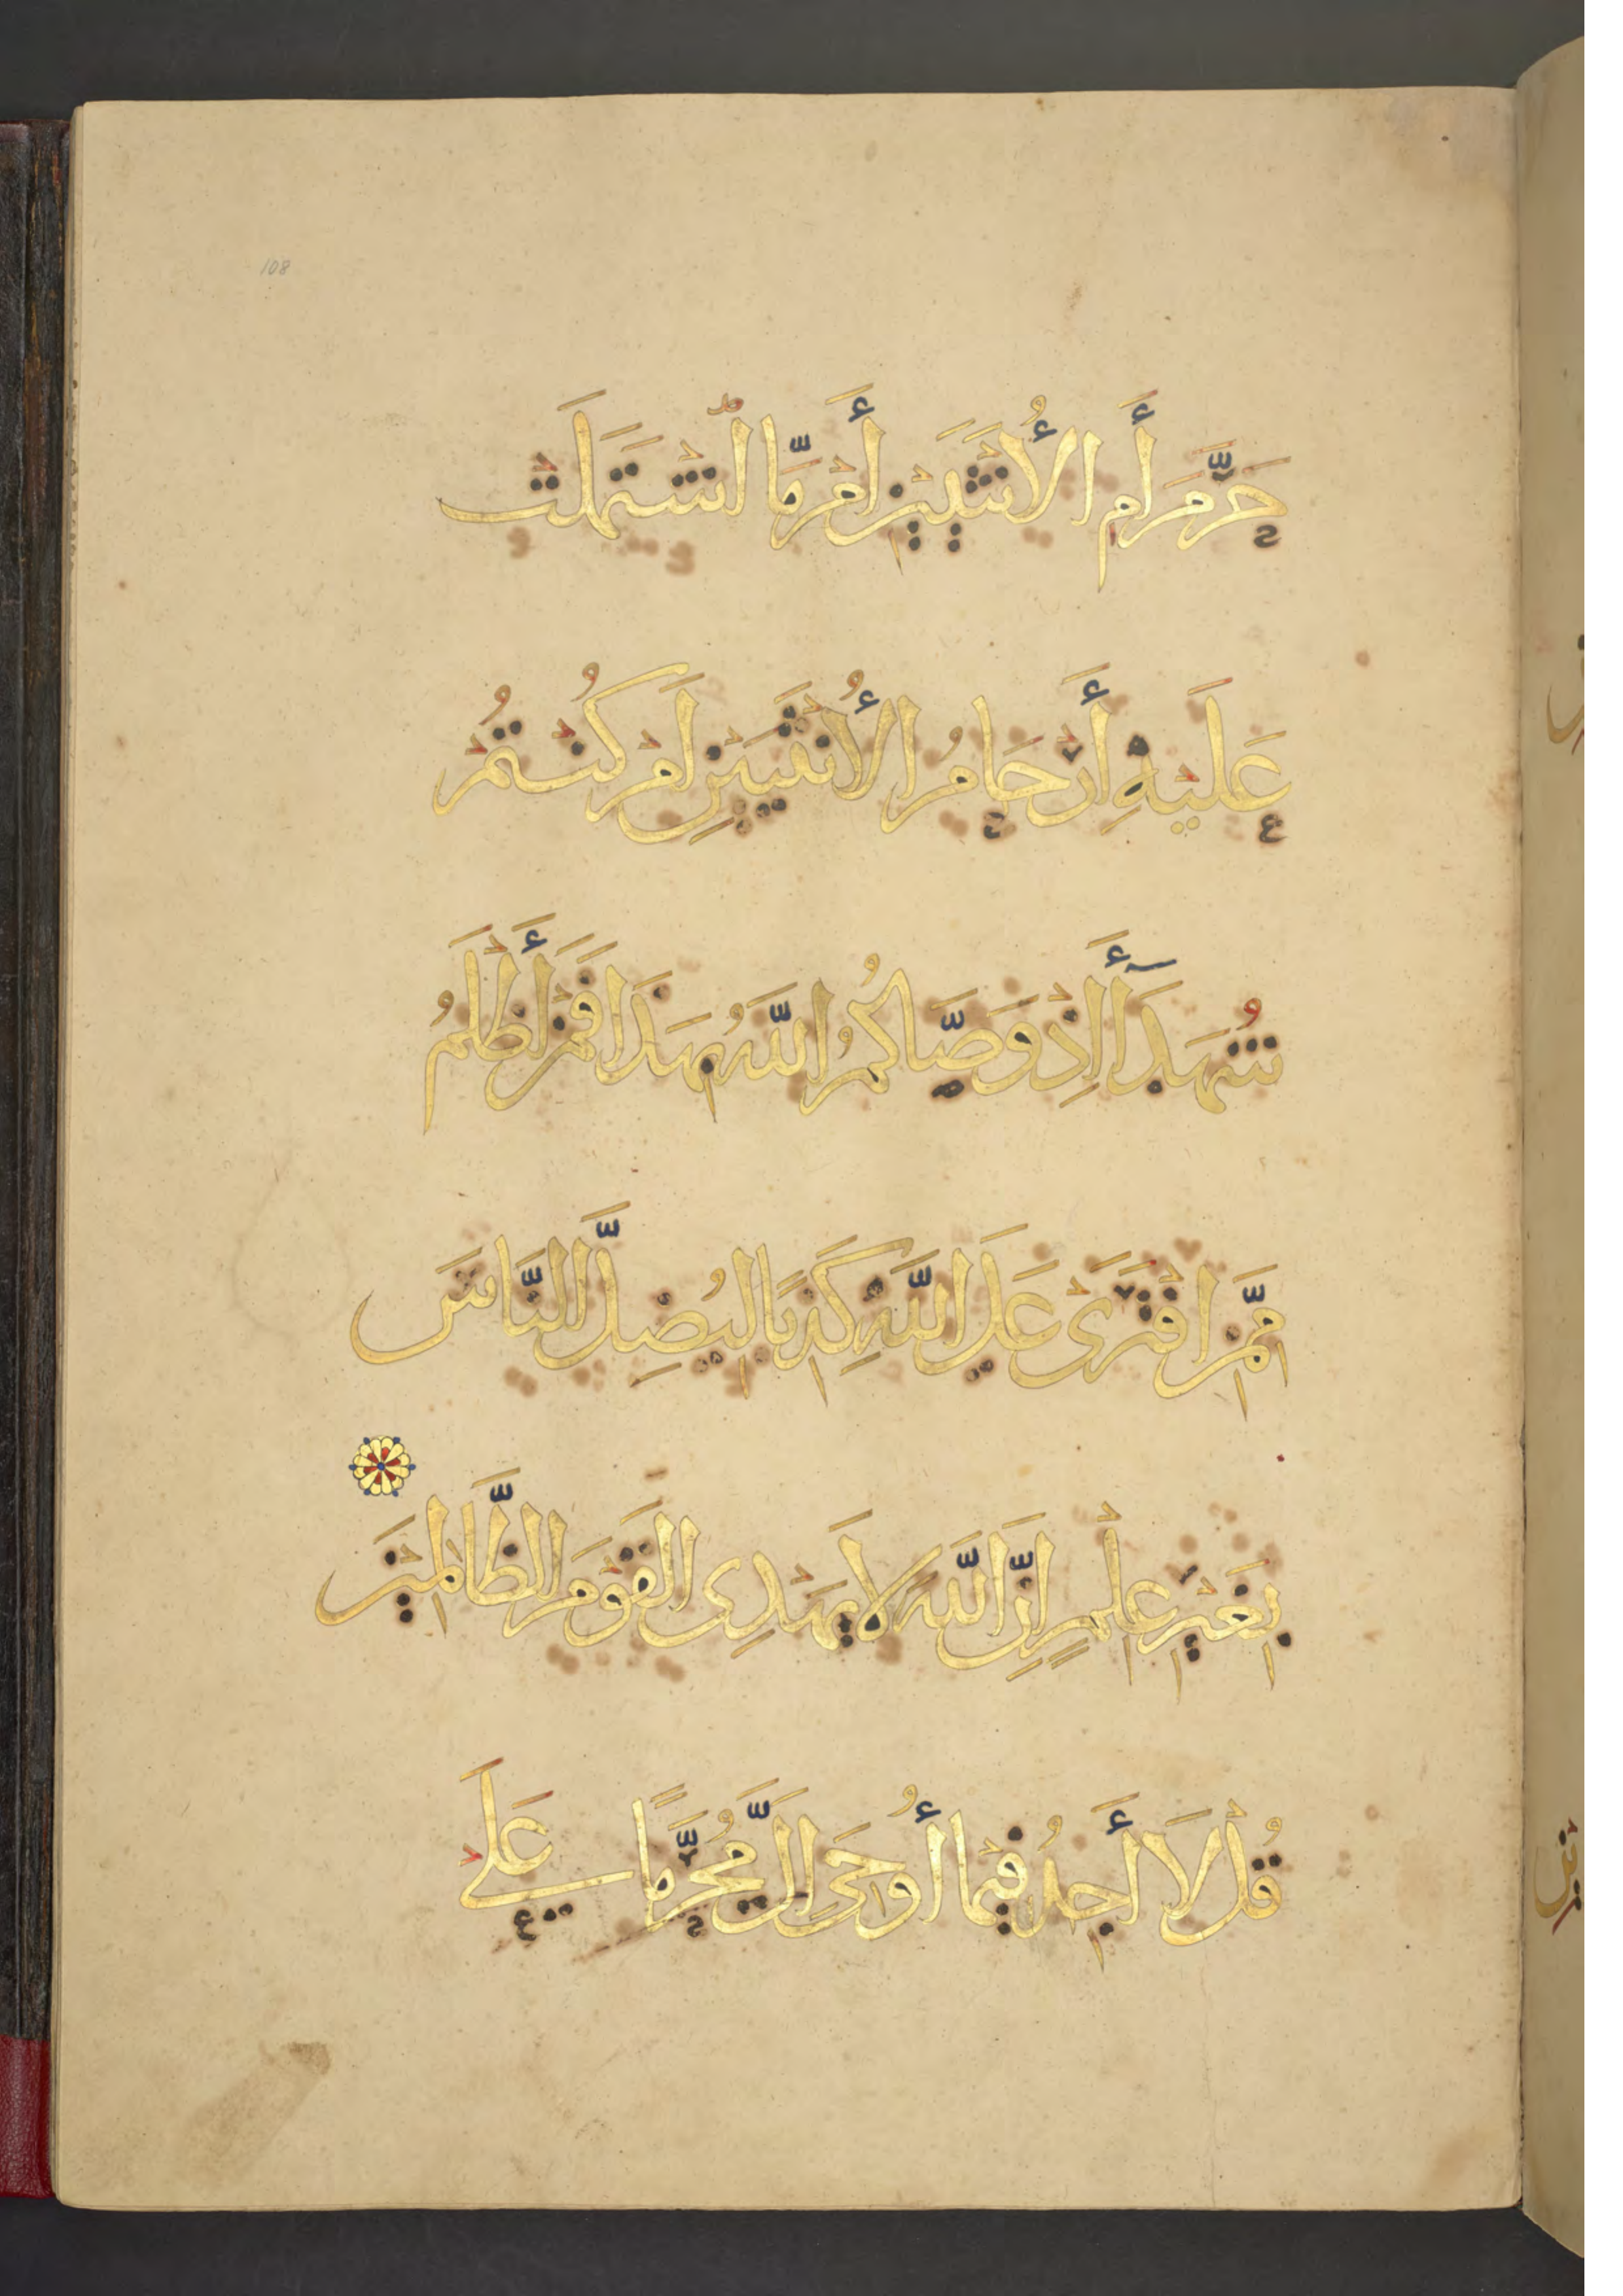 108
حَرَّمَ أَمِ الْأُنْثَيَيْنِ أَمْ مَّا اشْتَمَلَتْ
عَلَيْهِ أَرْحَامُ الْأُنْثَيَيْنِ أَمْ كُنْتُمْ
شُهَدَآأَ إِذْ وَصَّاكُمُ اللَّهُ بِهَذَا فَمَنْ أَظْلَمُ
مِمَّنِ افْتَرَىٰ عَلَى اللَّهِ كَذِبًا لِيُضِلَّ النَّاسَ
بِغَيْرِ عِلْمٍ إِنَّ اللَّهَ لَا يَهْدِي الْقَوْمَ الظَّالِمِينَ
قُلْ لَا أَجِدُ فِيمَا أُوحِيَ إِلَيَّ مُحَرَّمًا عَلَى